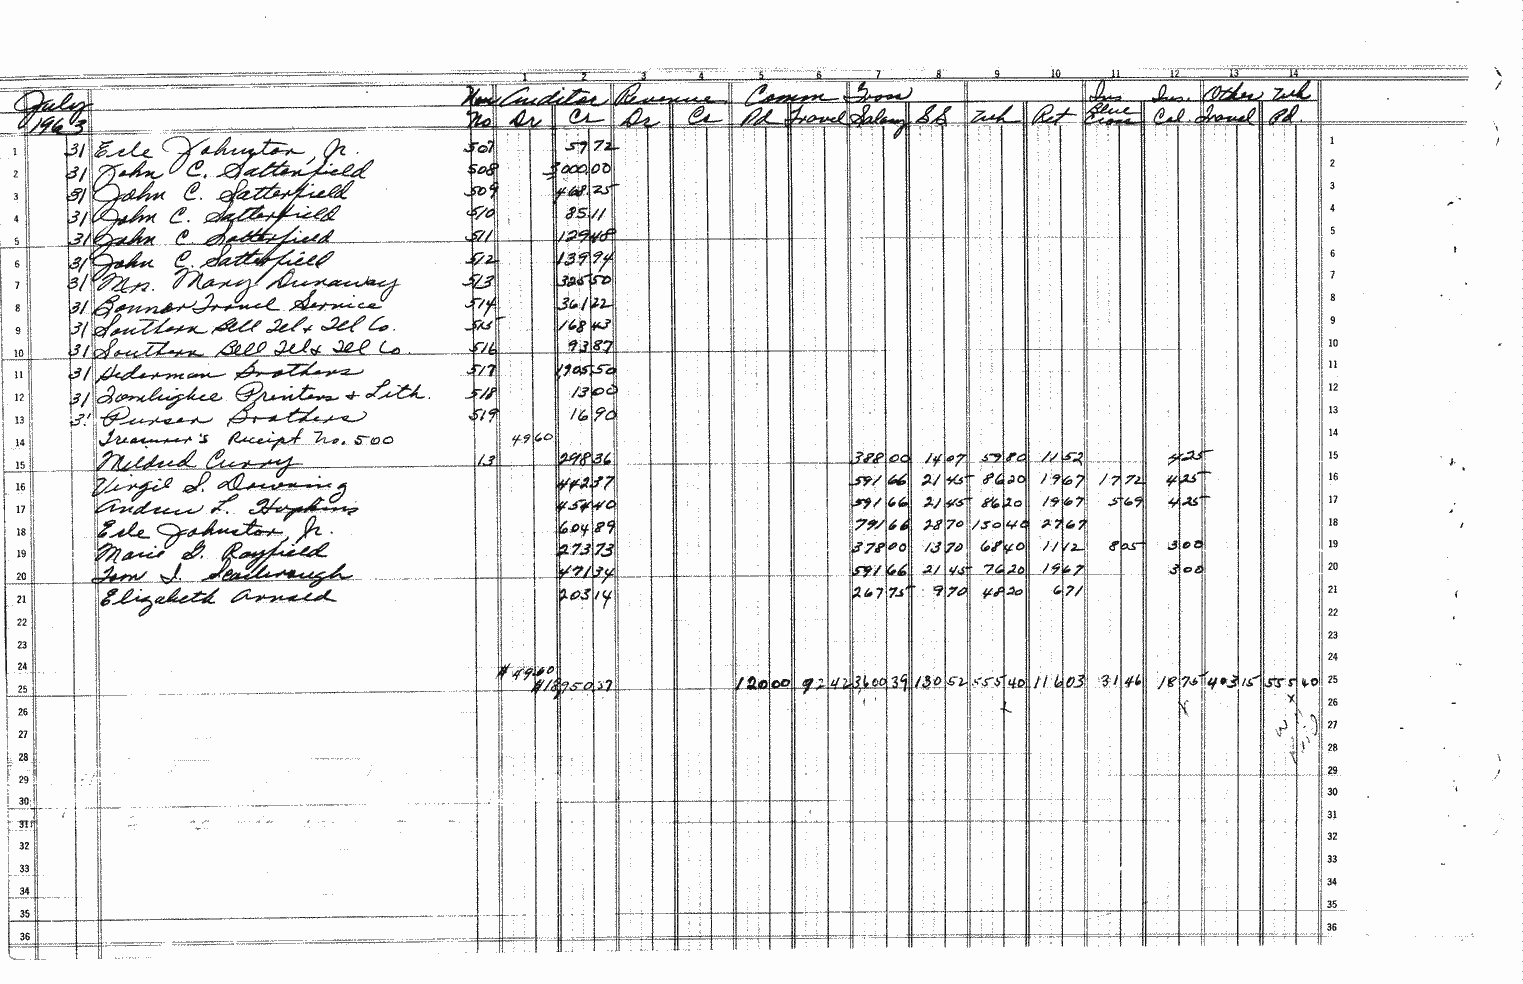 1 2 3 4 5 6 7 8 9 10 11 12 13 14
July Auditor Revenue Comm Gross Ins Ins. Other Wh
1963 No Dr Cr Dr Cr Pd Travel Salary S.S. Wh Ret Blue Cross Cal. Travel Pd.
1 31 Erle Johnston, Jr. 507 5972 1
2 31 John C. Satterfield 508 3000.00 2
3 31 John C. Satterfield 509 468.25 3
4 31 John C. Satterfield 510 85.11 4
5 31 John C. Satterfield 511 12948 5
6 31 John C. Satterfield 512 13994 6
7 31 Mrs. Mary Dunaway 513 32550 7
8 31 Bonner Travel Service 514 36122 8
9 31 Southern Bell Tel & Tel Co. 515 16843 9
10 31 Southern Bell Tel & Tel Co. 516 9387 10
11 31 Hederman Brothers 517 1905.50 11
12 31 Tombigbee Printers & Lith. 518 1300 12
13 31 Purser Brothers 519 1690 13
14 Treasurer's Receipt No. 500 4960 14
15 Mildred Curry 13 29836 38800 1407 5980 1152 425 15
16 Virgil S. Downing 44237 59166 2145 8620 1967 1772 425 16
17 Andrew L. Hopkins 45440 59166 2145 8620 1967 569 425 17
18 Erle Johnston, Jr. 60489 79166 2870 13040 2767 18
19 Marie G. Rayfield 27373 37800 1370 6840 1112 805 300 19
20 Tom J. Scarbrough 47134 59166 2145 7620 1967 300 20
21 Elizabeth Arnold 20314 26775 970 4820 671 21
22 22
23 23
24 $4960 24
25 12000 9242 360039 13052 55540 11603 3146 1875 40315 55540 25
26 x x x 26
27 27
28 28
29 29
30 30
31 31
32 32
33 33
34 34
35 35
36 36